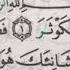 كَوْثَرَ ١ فَ
شَانِئَكَ هُوَ